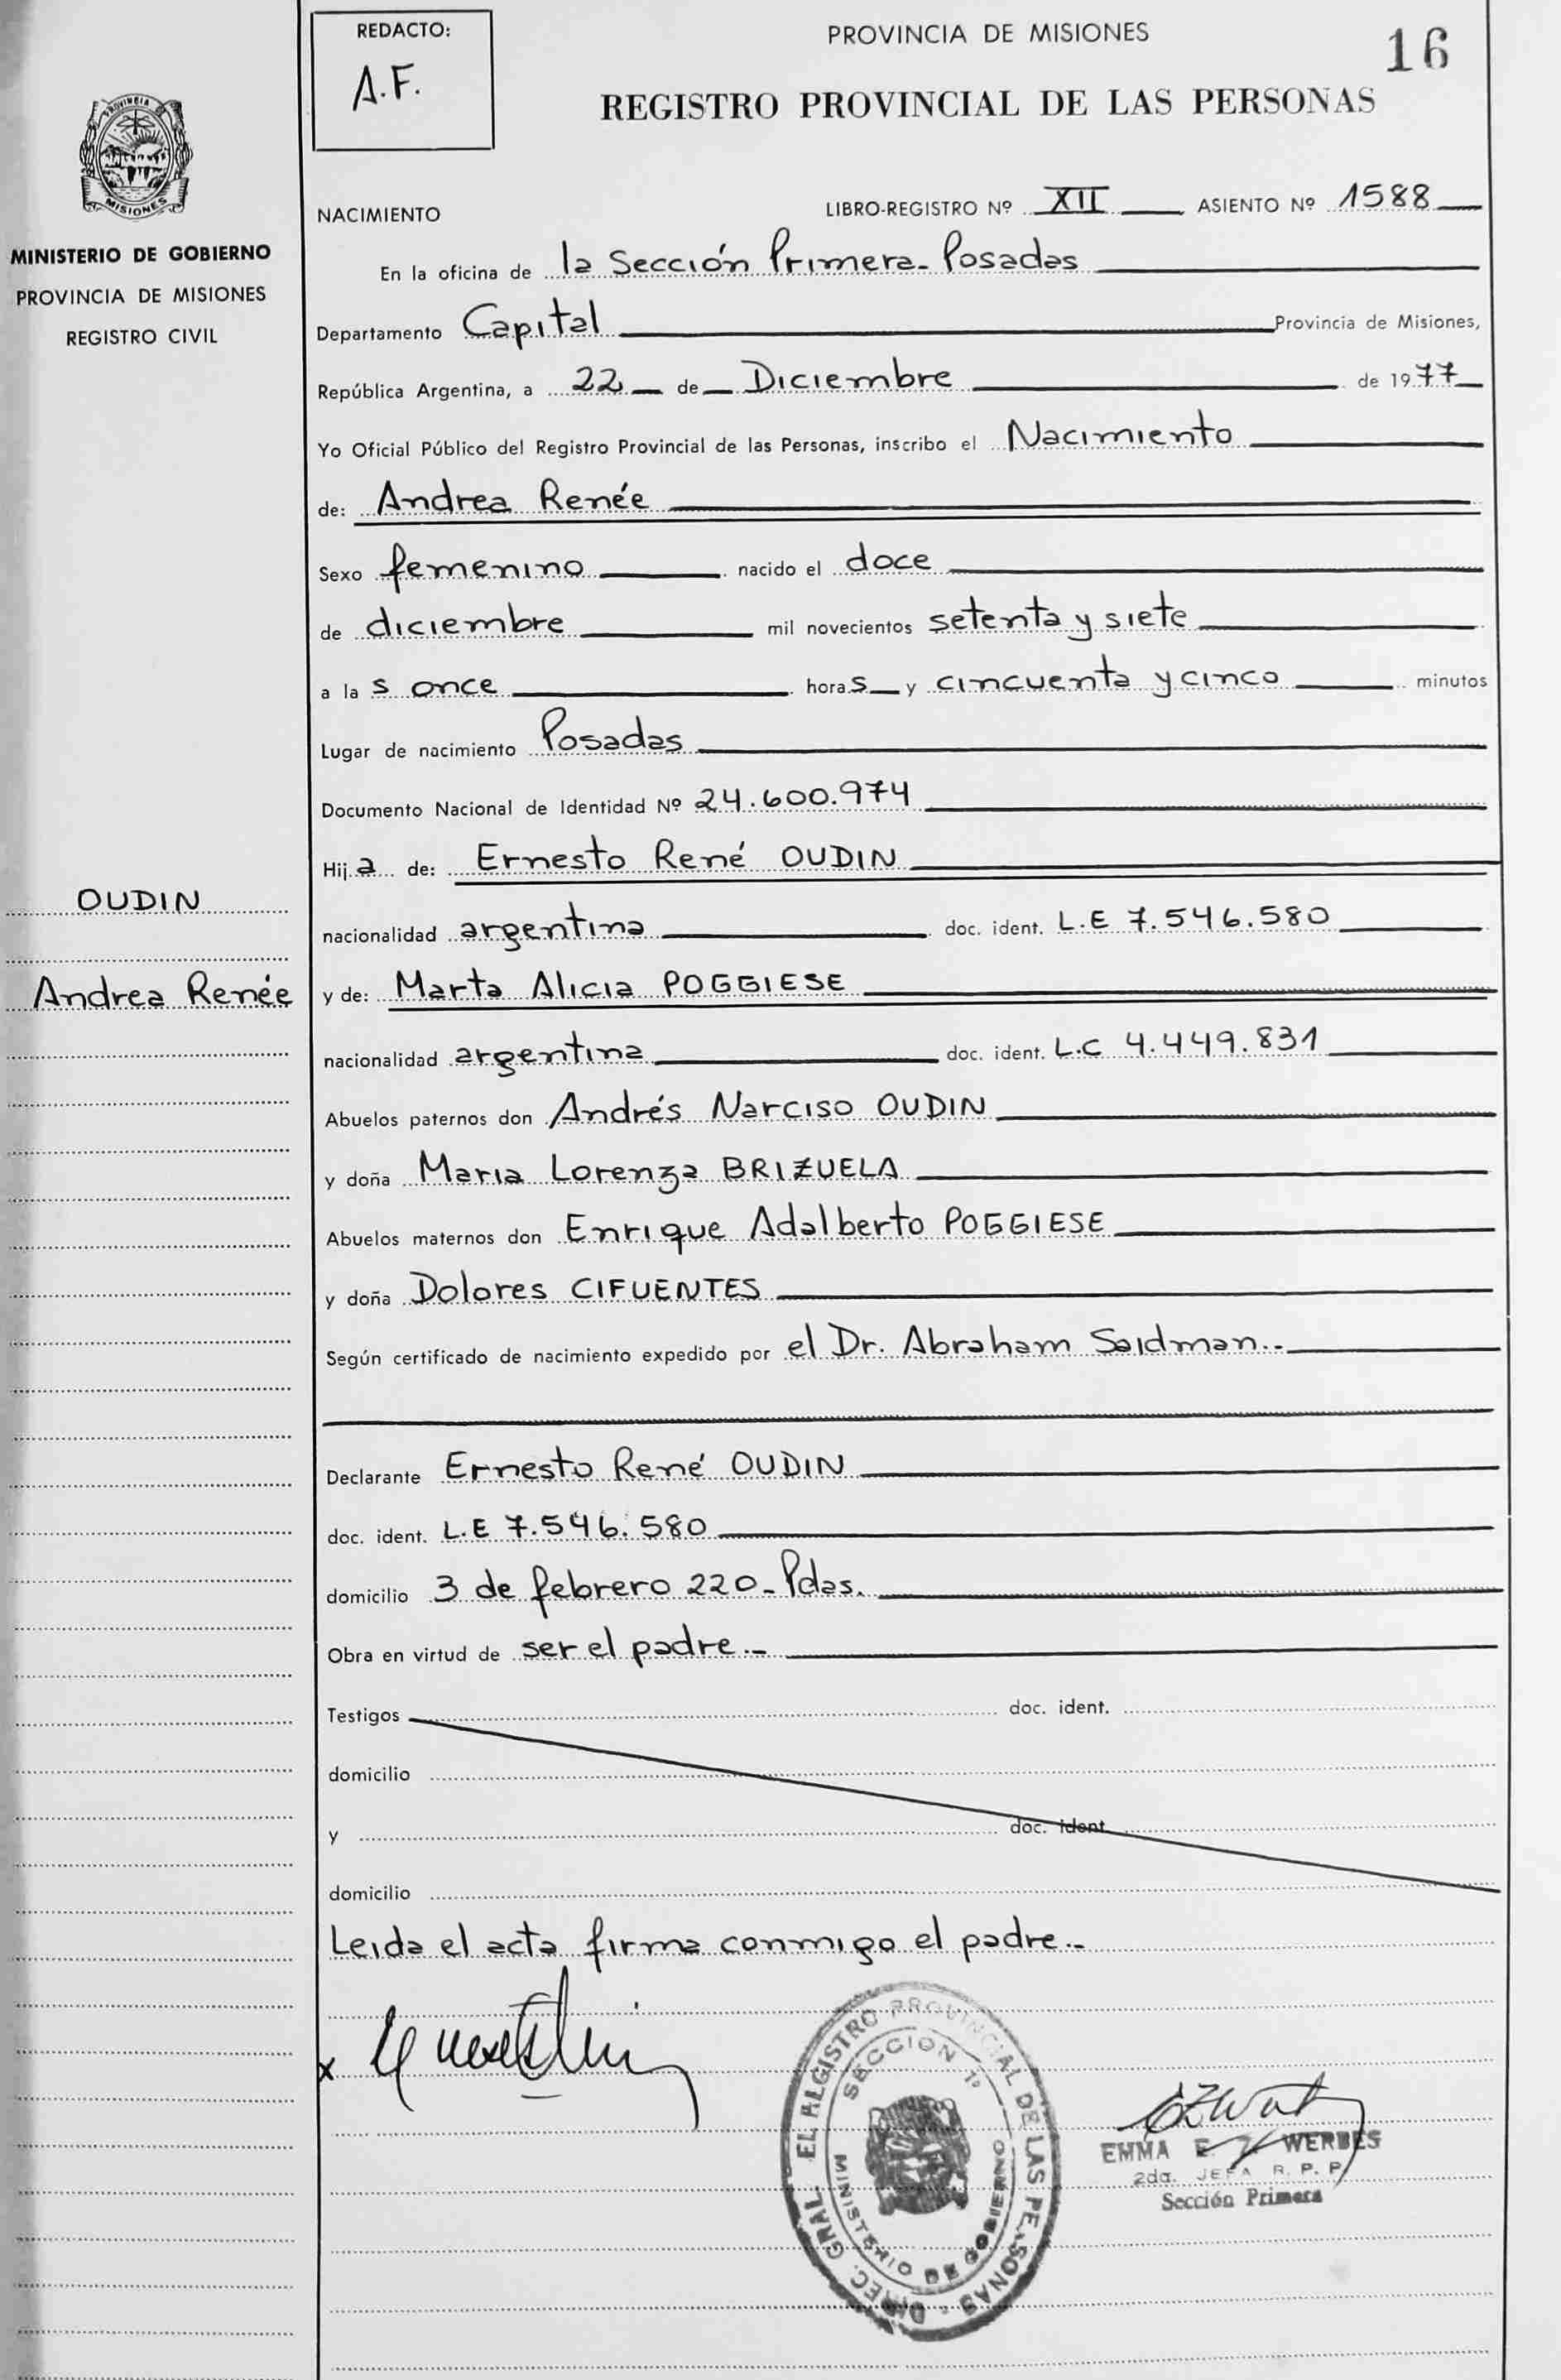 REDACTO:
A.F.
PROVINCIA DE MISIONES
16
REGISTRO PROVINCIAL DE LAS PERSONAS
PROVINCIA
MISIONES
MINISTERIO DE GOBIERNO
PROVINCIA DE MISIONES
REGISTRO CIVIL
NACIMIENTO
LIBRO-REGISTRO Nº XII ASIENTO Nº 1588
En la oficina de la Sección Primera - Posadas
Departamento Capital Provincia de Misiones,
República Argentina, a 22 de Diciembre de 1977
Yo Oficial Público del Registro Provincial de las Personas, inscribo el Nacimiento
de: Andrea Renée
Sexo femenino nacido el doce
de diciembre mil novecientos setenta y siete
a las once horas y cincuenta y cinco minutos
Lugar de nacimiento Posadas
Documento Nacional de Identidad Nº 24.600.974
Hija de: Ernesto René OUDIN
OUDIN
nacionalidad argentina doc. ident. L.E 7.546.580
Andrea Renée
y de: Marta Alicia POGGIESE
nacionalidad argentina doc. ident. L.C 4.449.831
Abuelos paternos don Andrés Narciso OUDIN
y doña Maria Lorenza BRIZUELA
Abuelos maternos don Enrique Adalberto POGGIESE
y doña Dolores CIFUENTES
Según certificado de nacimiento expedido por el Dr. Abraham Saidman.-
Declarante Ernesto René OUDIN
doc. ident. L.E 7.546.580
domicilio 3 de febrero 220 - Pdas.
Obra en virtud de ser el padre.-
Testigos doc. ident.
domicilio
y doc. ident.
domicilio
Leida el acta firma conmigo el padre.-
x
DIREC. GRAL. REGISTRO PROVINCIAL DE LAS PERSONAS
SECCION 1ª
MINISTERIO DE GOBIERNO
EMMA E. WERBES
2da. JEFA R. P. P.
Sección Primera